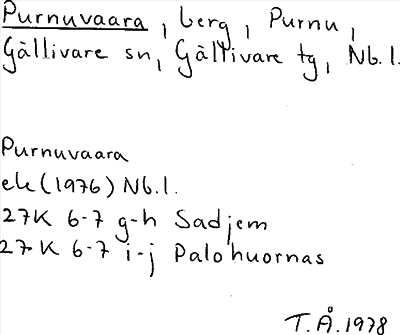 Purnuvaara, berg, Purnu,
Gällivare sn, Gällivare tg, Nb.l.
Purnuvaara
ek(1976) Nb.l.
27K 6-7 g-h Sadjem
27K 6-7 i-j Palohuornas
T.Å.1978